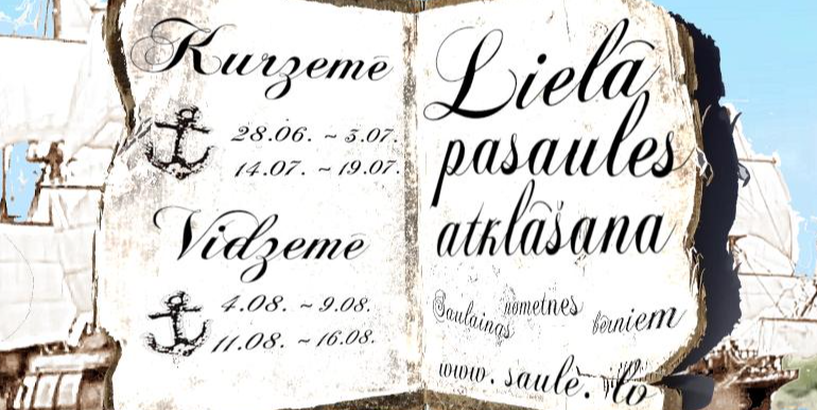 Kurzemē
28.06. ~ 3.07.
14.07. ~ 19.07.
Vidzemē
4.08. ~ 9.08.
11.08. ~ 16.08.
Lielā
pasaules
atklāšana
Saulainas nometnes bērniem
www.saule.lv